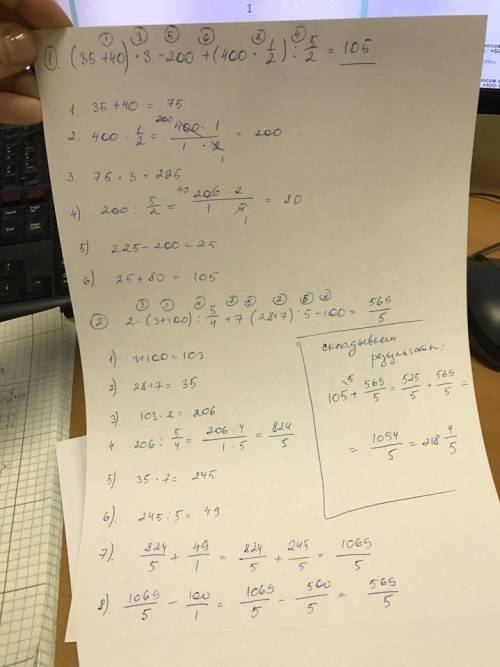 ① ③ ⑤ ⑥ ② ④
①. (35+40) · 3 - 200 + (400 · 1/2) : 5/2 = 105
1. 35+40 = 75
2. 400 · 1/2 = 200 400 · 1 / 1 · 2 1 = 200
3. 75 · 3 = 225
4) 200 : 5/2 = 40 200 · 2 / 1 · 5 1 = 80
5) 225 - 200 = 25
6) 25 + 80 = 105
③ ① ④ ⑦ ⑤ ② ⑥ ⑧
②. 2 · (3+100) : 5/4 + 7 (28+7) : 5 - 100 = 569/5
1) 3+100 = 103
2) 28+7 = 35
3) 103 · 2 = 206
4 206 : 5/4 = 206 · 4 / 1 · 5 = 824/5
5) 35 · 7 = 245
6) 245 : 5 = 49
7) 824/5 + 49/1 = 824/5 + 245/5 = 1069/5
8) 1069/5 - 100/1 = 1069/5 - 500/5 = 569/5
складываем
результаты:
5
105 + 569/5 = 525/5 + 569/5 =
= 1094/5 = 218 4/5